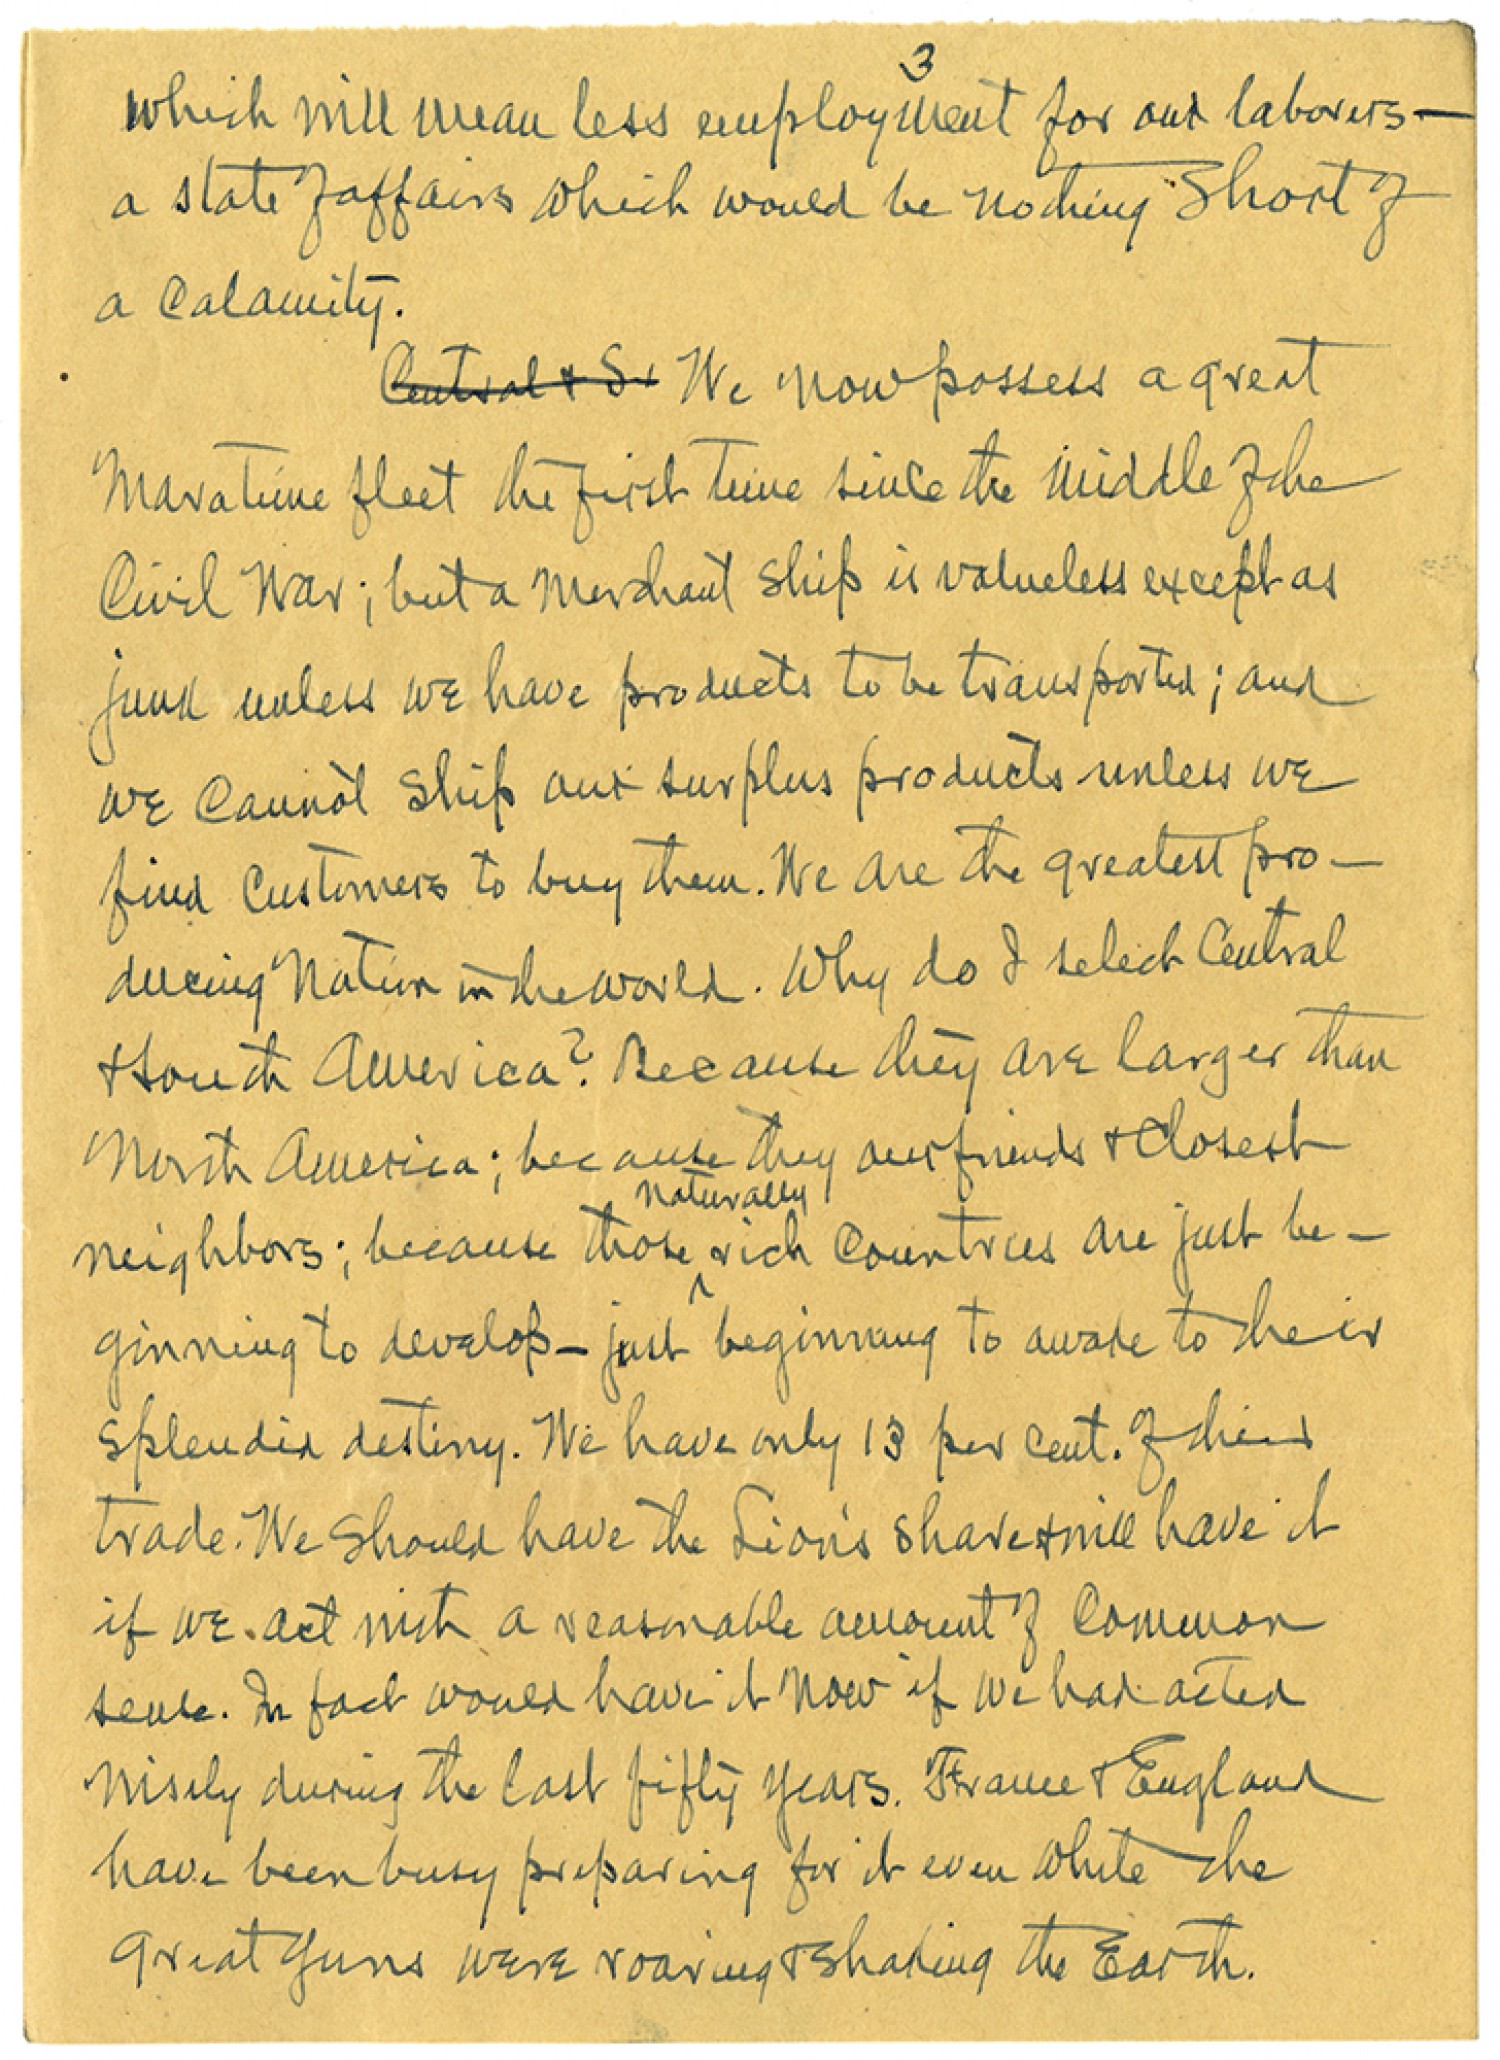 3
which will mean less employment for our laborers—
a state of affairs which would be nothing short of
a calamity.
Central & So We now possess a great
Maratime fleet the first time since the middle of the
Civil War; but a Merchant ship is valueless except as
junk unless we have products to be transported; and
we cannot ship our surplus products unless we
find customers to buy them. We are the greatest pro-
ducing Nation in the world. Why do I select Central
& South America? Because they are larger than
North America; because they our friends & closest
naturally
neighbors; because those rich countries are just be-
ginning to develop—just beginning to awake to their
splendid destiny. We have only 13 per cent. of their
trade. We should have the Lion's share & will have it
if we act with a reasonable amount of common
sense. In fact would have it now if we had acted
wisely during the last fifty years. France & England
have been busy preparing for it even while the
great guns were roaring & shaking the Earth.